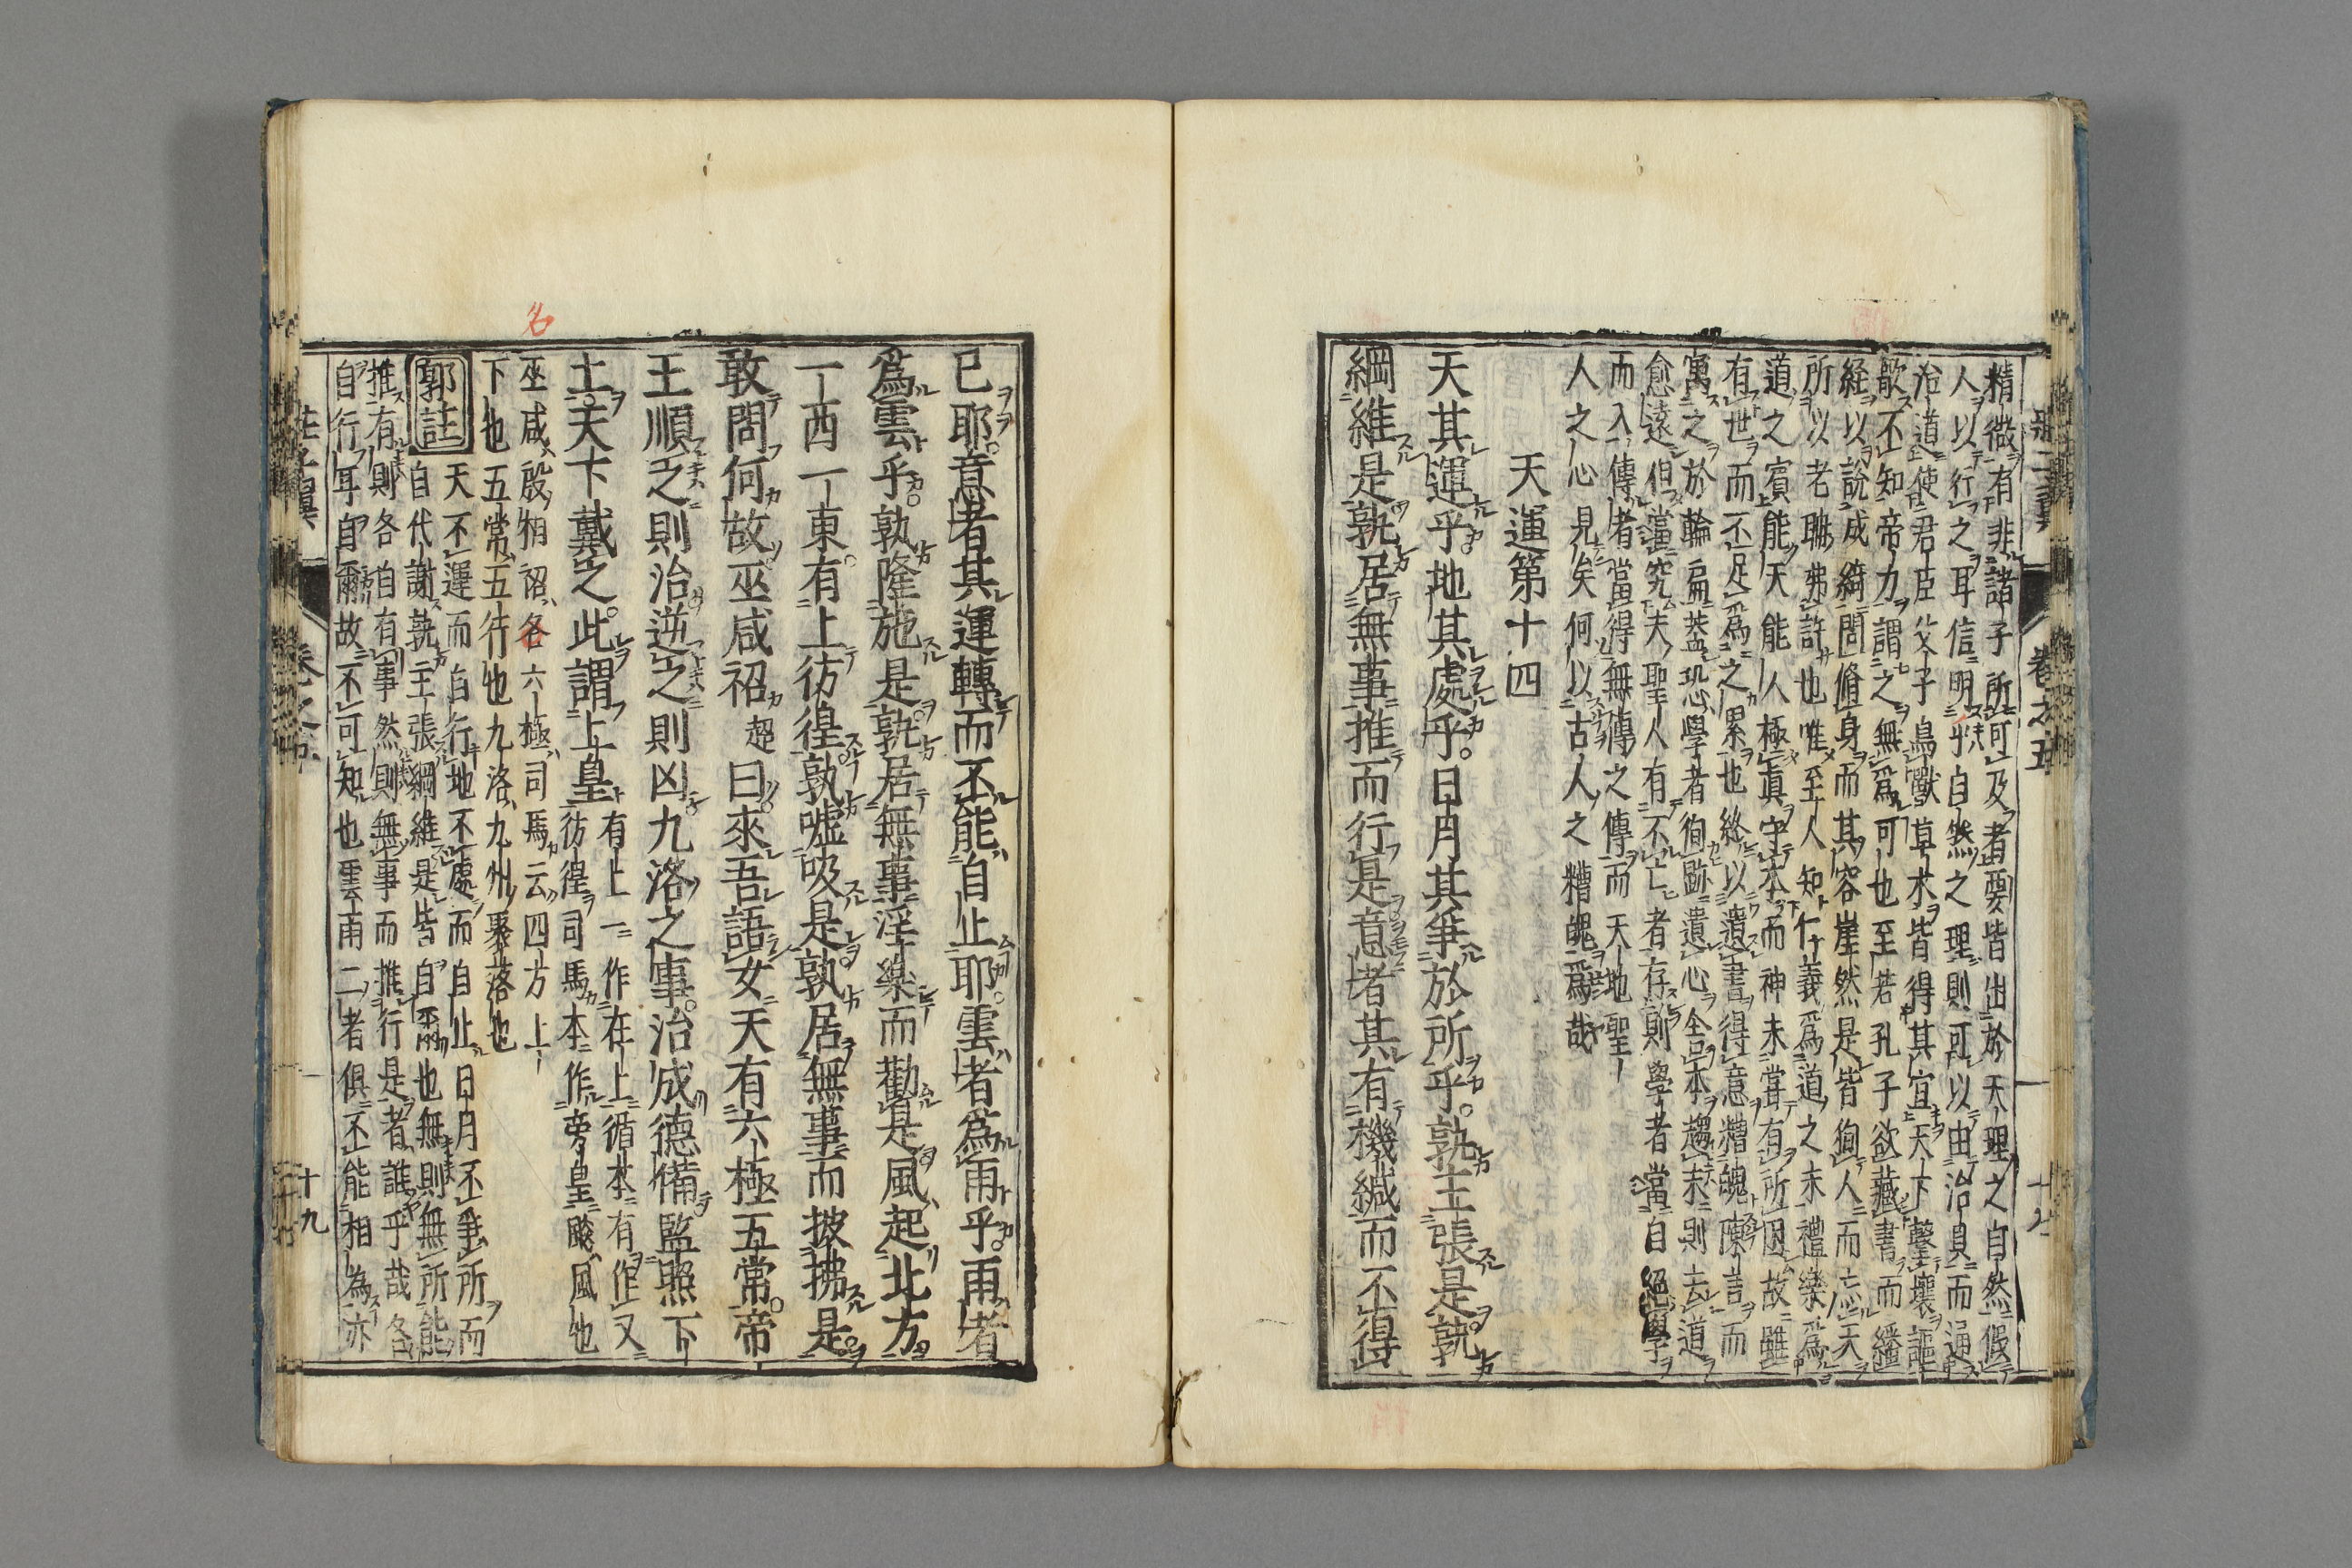 精微有非諸子所可及者要皆出於天理之自然假
人以行之耳信明乎自然之理則可以由治具而通
治道使君臣父子鳥獸草木皆得其宜天下擊壤謳
歌不知帝力謂之無爲可也至若孔子欲藏書而繙
経以說成綺問脩身而其容崖然是皆徇人而忘天
所以老聃弗許也唯至人知仁義爲道之末禮樂爲
道之賓能天能人極眞守本而神未甞有所困故雖
有世而不足爲之累也終以遺書得意糟魄陳言而
寓之於輪扁葢恐學者徇跡遺心舍本趨末則去道
愈遠但當究夫聖人有不亡者存則學者當自絕學
而入傳者當得無傳之傳而天地聖
人之心見矣何以古人之糟魄爲哉
天運第十四
天其運乎地其處乎日月其爭於所乎孰主張是孰
綱維是孰居無事推而行是意者其有機緘而不得
已耶意者其運轉而不能自止耶雲者爲雨乎雨者
爲雲乎孰隆施是孰居無事淫樂而勸是風起北方
一西一東有上彷徨孰噓吸是孰居無事而披拂是
敢問何故巫咸袑超曰來吾語女天有六極五常帝
王順之則治逆之則凶九洛之事治成德備監照下
土天下戴之此謂上皇有上一作在上循本有作又
彷徨司馬本作旁皇颷風也
巫咸殷相袑名六極司馬云四方上
下也五常五行也九洛九州聚落也
郭註天不運而自行地不處而自止日月不爭所而
自代謝孰主張綱維是皆自爾也無則無所能
推有則各自有事然則無事而推行是者誰乎哉各
自行耳自爾故不可知也雲雨二者俱不能相為亦
莊子翼
卷之五
十九